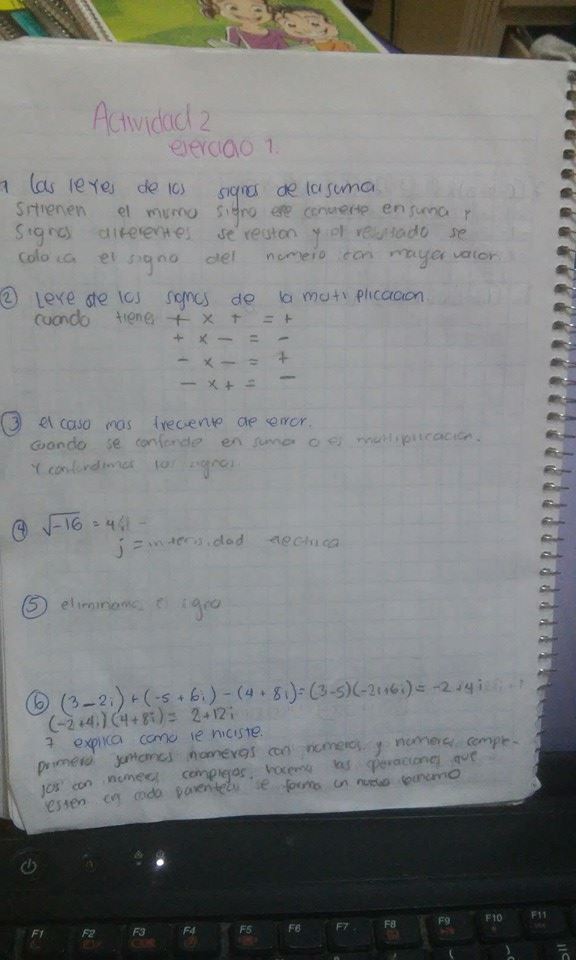 Actividad 2
ejercicio 1.
1 Las leyes de los signos de la suma.
Si tienen el mismo signo se convierte en suma y
signos diferentes se restan y el resultado se
coloca el signo del numero con mayor valor
② leye de los signos de la multiplicacion.
cuando tienes + x + = +
+ x - = -
- x - = +
- x + = -
③ el caso mas frecuente de error.
cuando se confunde en suma o es multiplicacion.
Y confundimos los signos.
④ √-16 = 4
j = intensidad electrica
⑤ eliminamos
⑥ (3-2i)+(-5+6i)-(4+8i)=(3-5)(-2i+6i)= -2+4i
(-2+4i)(4+8i)= 2+12i
7 explica como le hiciste.
primero juntamos numeros con numeros y numeros comple-
jos con numeros complejos, hacemos las operaciones que
esten en cada parentesis se forma un nuevo binomio
F1 F2 F3 F4 F5 F6 F7 F8 F9 F10 F11